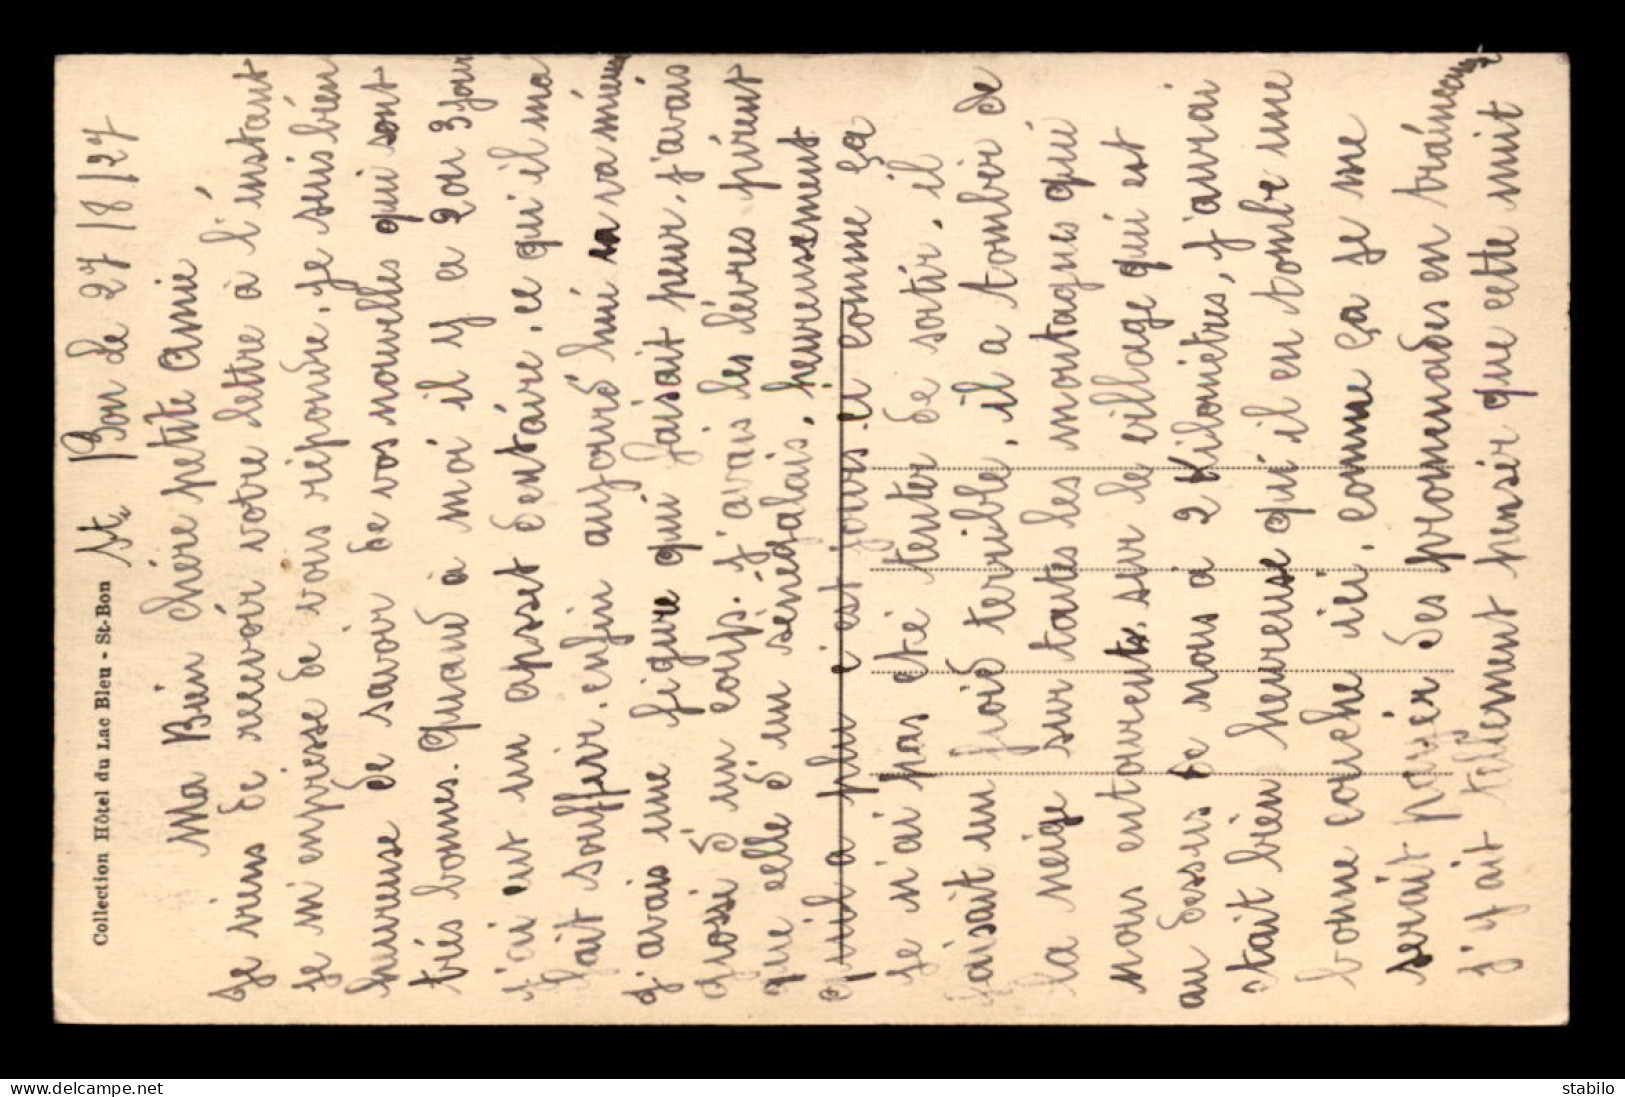 Collection Hôtel du Lac Bleu - St-Bon
St. Bon le 27/8/27
Ma Bien chère petite Amie
Je viens de recevoir votre lettre à l'instant
Je m'enpresse de vous répondre. Je suis bien
heureuse de savoir de vos nouvelles qui sont
très bonnes. Quand à moi il y a 2 ou 3 jours
j'ai eut un apset dentaire. ce qui il m'a
fait souffrir. enfin aujourd'hui sa va mieux
j'avais une figure qui faisait peur, j'avais
grossi d'un coup. j'avais les lèvres pirent
que elle d'un sénégalais, heureusement
qu'il a plu c'est jours. ce comme ça
je n'ai pas été tenter de sortir. il
faisait un froid terrible. il a tomber de
la neige sur toutes les montagnes qui
nous entourents. sur le village qui est
au dessus de nous à 2 Kilomètres, j'aurai
était bien heureuse qu'il en tombe une
bonne couche ici. comme ça je me
serait payer des promenades en traineaux
j'y ait tellement penser que cette nuit
www.delcampe.net
stabilo